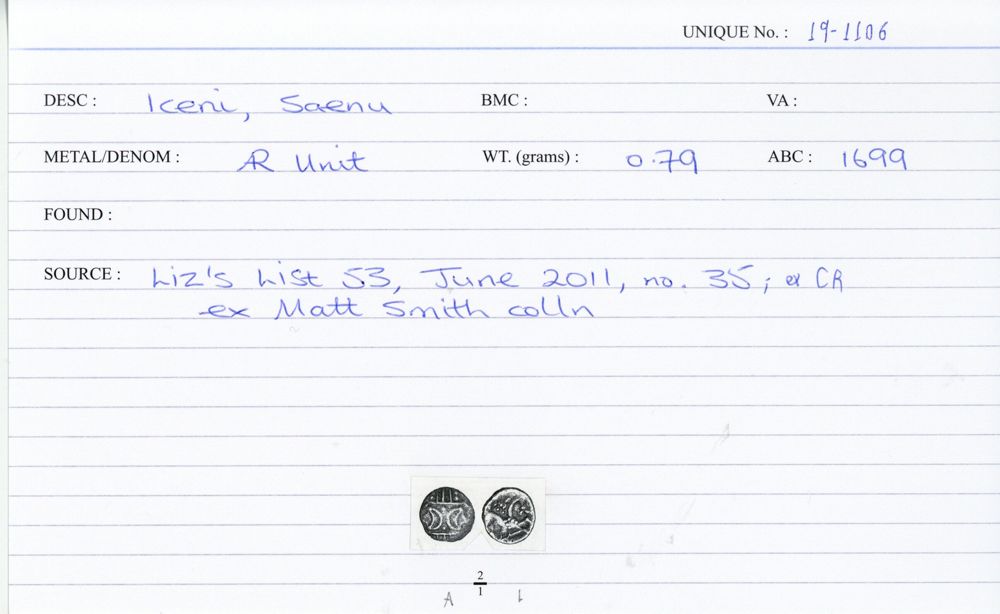 UNIQUE No. : 19-1106
DESC : Iceni, Saenu BMC : VA :
METAL/DENOM : AR Unit WT. (grams) : 0.79 ABC : 1699
FOUND :
SOURCE : Liz's List 53, June 2011, no. 35; ex CR
ex Matt Smith colln
2
1
A 1